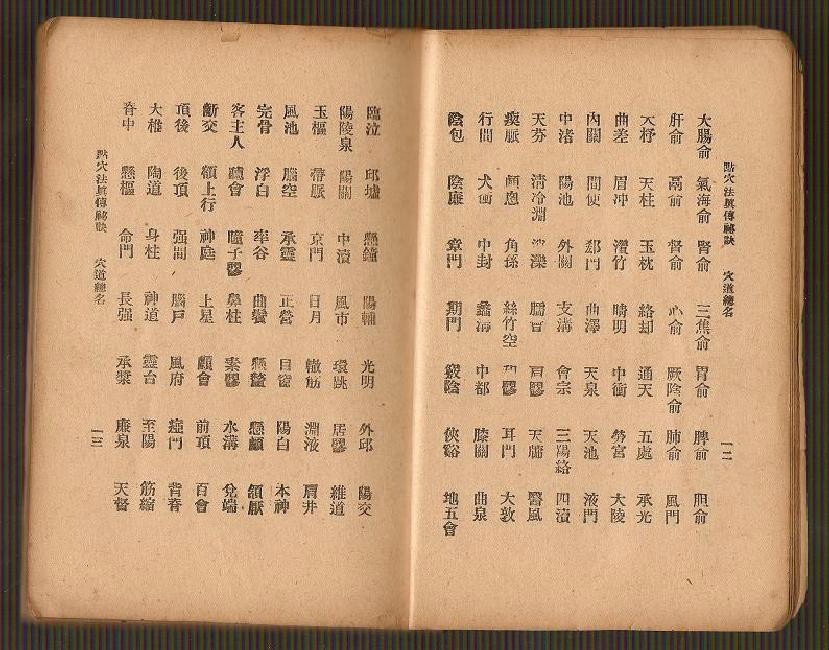 點穴法眞傳秘訣 穴道總名 一二
大腸俞 氣海俞 腎俞 三焦俞 胃俞 脾俞 胆俞
肝俞 鬲俞 督俞 心俞 厥陰俞 肺俞 風門
大杼 天柱 玉枕 絡却 通天 五處 承光
曲差 眉冲 攢竹 睛明 中衝 勞宮 大陵
內關 間使 郄門 曲澤 天泉 天池 液門
中渚 陽池 外關 支溝 會宗 三陽絡 四瀆
天井 淸冷淵 消濼 臑會 肩髎 天牖 醫風
瘈脈 顱息 角孫 絲竹空 和髎 耳門 大敦
行間 太衝 中封 蠡溝 中都 膝關 曲泉
陰包 陰廉 章門 期門 竅陰 俠谿 地五會
臨泣 邱墟 懸鐘 陽輔 光明 外邱 陽交
陽陵泉 陽關 中瀆 風市 環跳 居髎 維道
玉樞 帶脈 京門 日月 輒筋 淵液 肩井
風池 腦空 承靈 正營 目窗 陽白 本神
完骨 浮白 率谷 曲鬢 懸釐 懸顱 頷厭
客主人 聽會 瞳子髎 鼻柱 素髎 水溝 兌端
齗交 額上行 神庭 上星 顖會 前項 百會
頂後 後頂 强間 腦戶 風府 瘂門 背脊
大椎 陶道 身柱 神道 靈台 至陽 筋縮
脊中 懸樞 命門 長强 承漿 廉泉 天督
點穴法眞傳秘訣 穴道總名 一三